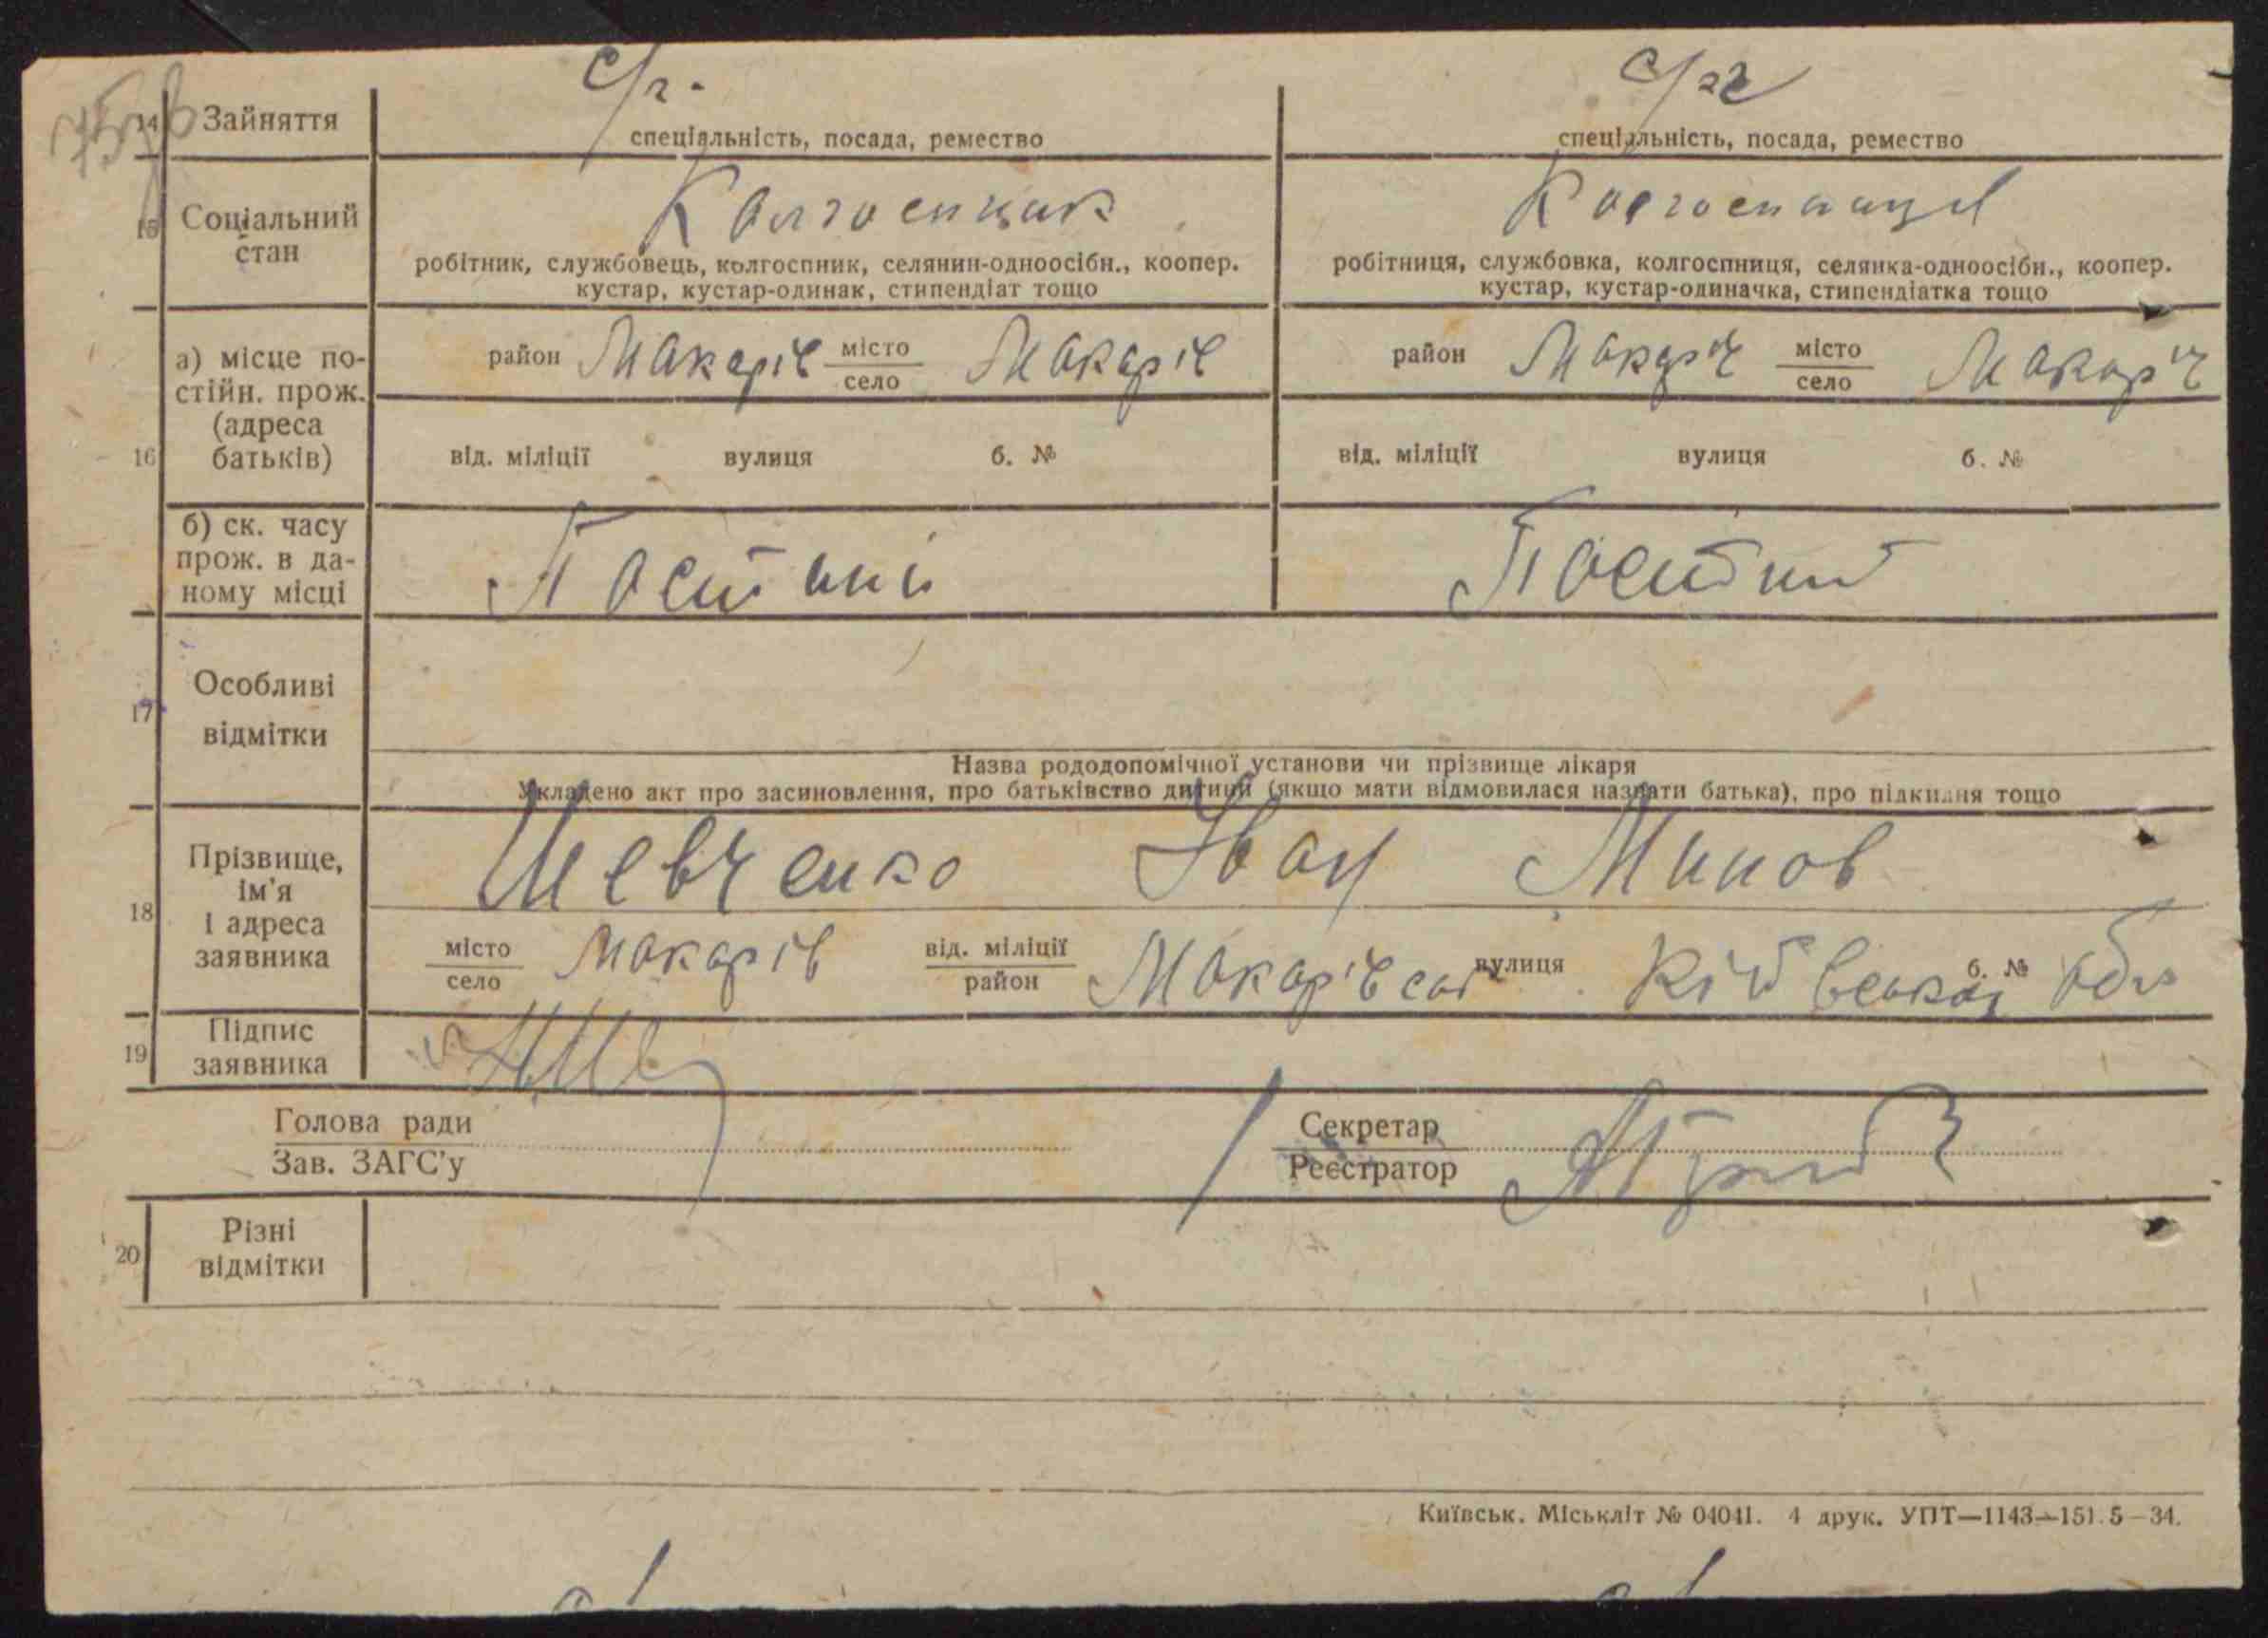 с/г. с/г
14 Зайняття спеціяльність, посада, ремество спеціяльність, посада, ремество
Колгоспник Колгоспниця
15 Соціальний стан
робітник, службовець, колгоспник, селянин-одноосібн., коопер. робітниця, службовка, колгоспниця, селянка-одноосібн., коопер.
кустар, кустар-одинак, стипендіат тощо кустар, кустар-одиначка, стипендіатка тощо
16 а) місце по-
стійн. прож.
(адреса
батьків)
район Макарів місто село Макарів район Макарів місто село Макарів
від. міліції вулиця б. № від. міліції вулиця б. №
б) ск. часу
прож. в да-
ному місці
Постійні Постійні
17 Особливі
відмітки
Назва рододопомічної установи чи прізвище лікаря
Укладено акт про засиновлення, про батьківство дитини (якщо мати відмовилася назвати батька), про підкидня тощо
18 Прізвище,
ім'я
і адреса
заявника
Шевченко Іван
місто село Макарів від. міліції район Макарівськ вулиця Київської б. № обл
19 Підпис
заявника
Голова ради Секретар
Зав. ЗАГС'у Реєстратор
20 Різні
відмітки
Київськ. Міськліт № 04041. 4 друк. УПТ—1143—151.5—34.